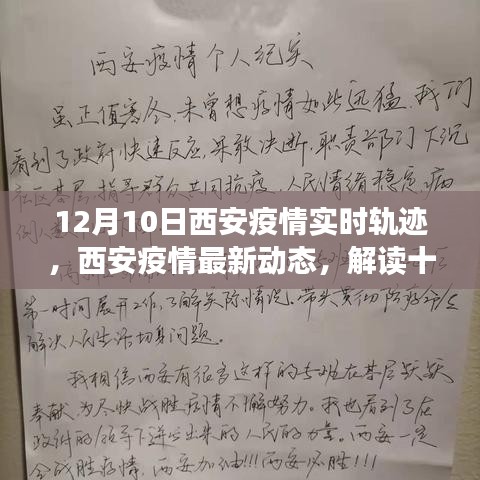 西安疫情个人纪实
虽正值寒冬,未曾想疫情如此迅猛,我们
看到了政府快速反应,果敢决断,职责部门下沉
社区基层,指导群众共同抗疫,人民情绪稳定,病
12月10日西安疫情实时轨迹
,西安疫情最新动态,解读十
第一时间展开工作,了解实际情况。带头贯彻防疫
解决人民生活切身问题。
我相信西安有很多这样的专班在基层默默
奉献,为尽快战胜疫情不懈努力。我也看到了在
政府的领导下迸发出来的人民的力量。西安一定
会战胜疫情,西安加油!!!西安必胜!!!